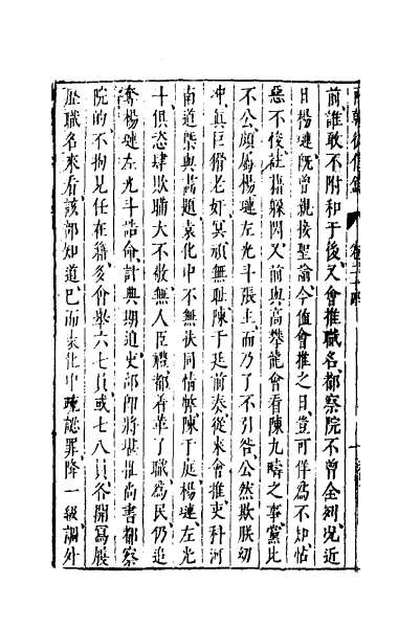 兩朝從信錄 卷二十四
前誰敢不附和于後又會推職名都察院不曾全列況近
日楊漣旣曾親接聖諭今値會推之日豈可佯為不知怙
惡不悛 藉躱閃又前與高攀龍會看陳九疇之事黨比
不公顯屬楊漣左光斗張主而乃了不引咎公然欺朕幼
冲眞巨猾老奸冥頑無恥陳于廷前奏從來會推吏科河
南道槩與書題袁化中不無扶同情弊陳于庭楊漣左光
斗俱恣肆欺瞞大不敬無人臣禮都着革了職為民仍追
奪楊漣左光斗誥命計典期迫吏部卽將堪推尚書都察
院的不拘見任在籍多會舉六七員或七八員各開寫履
歷職名來看該部知道已而袁化中疏認罪降一級調外